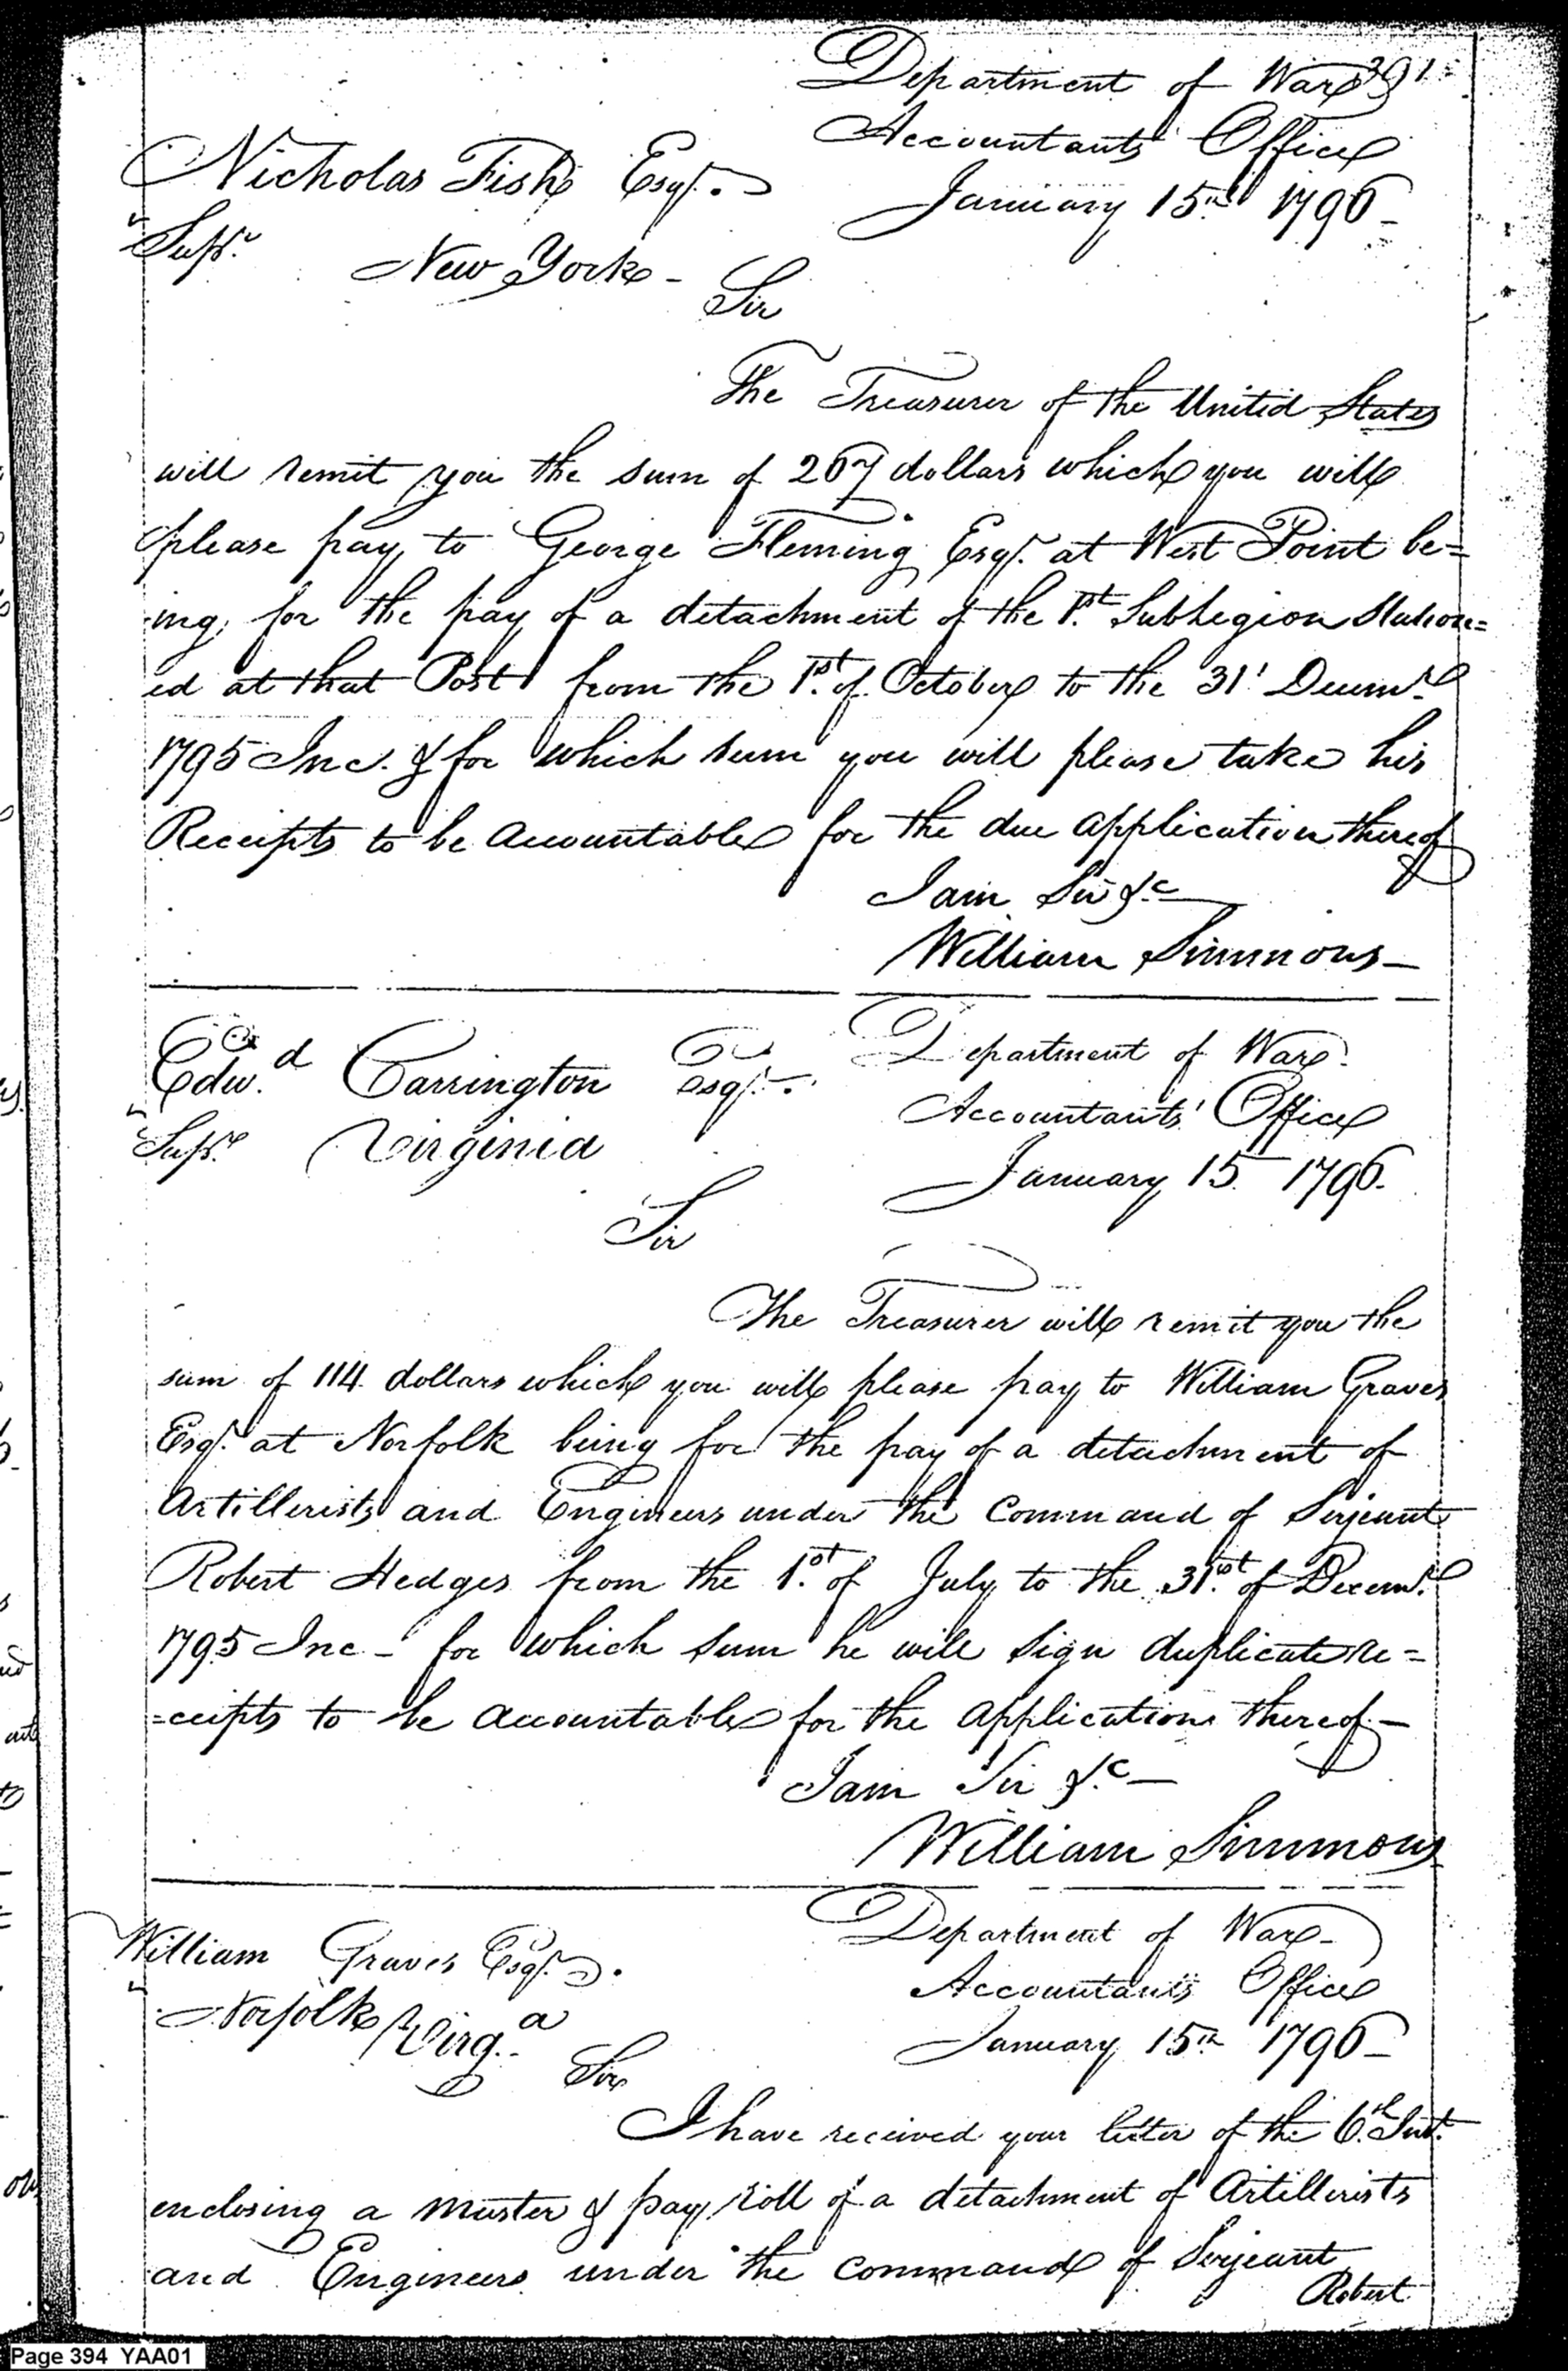 391
Department of War
Accountants Office
January 15th 1796
Nicholas Fish Esqr.
Supr.
New York -
Sir
The Treasurer of the United States
will remit you the sum of 267 dollars which you will
please pay to George Fleming Esqr. at West Point be=
ing, for the pay of a detachment of the 1st. SubLegion Station=
ed at that Post from the 1st. of October to the 31' Decemr.
1795 Inc. & for which sum you will please take his
Receipts to be accountable for the due application thereof
I am Sir &c
William Simmons -
Edw.d Carrington Esqr.
Supr. Virginia
Department of War
Accountants' Office
January 15 1796.
Sir
The Treasurer will remit you the
sum of 114 dollars which you will please pay to William Graves
Esqr. at Norfolk being for the pay of a detachment of
Artillerists and Engineers under the Command of Serjeant
Robert Hedges from the 1st. of July to the 31st. of Decemr.
1795 Inc - for which sum he will sign duplicate re=
=ceipts to be accountable for the application thereof -
I am Sir &c -
William Simmons
William Graves Esqr.
Norfolk Virg.a
Department of War -
Accountants Office
January 15th 1796 -
Sir
I have received your letter of the 6th. Inst.
enclosing a muster & pay roll of a detachment of Artillerists
and Engineers under the command of Serjeant
Robert
Page 394 YAA01